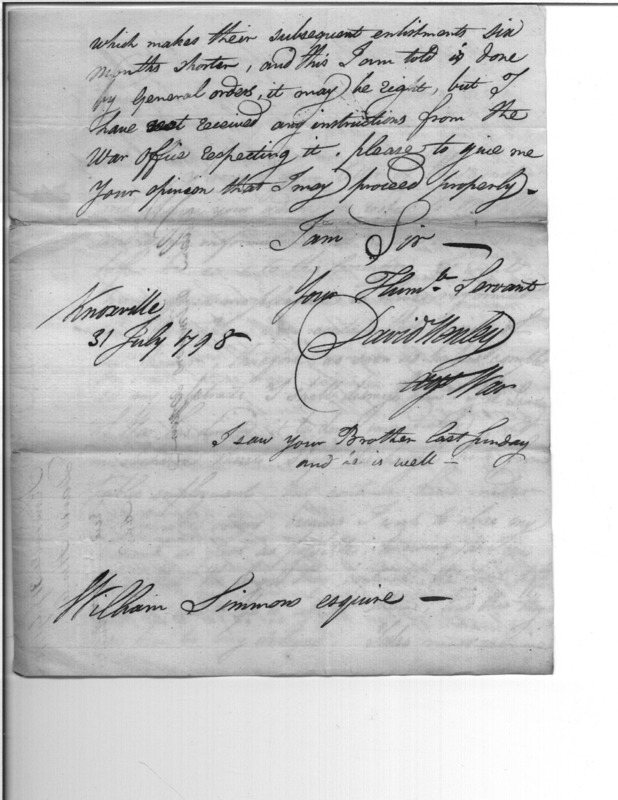 which makes their subsequent enlistments six
months shorter, and this I am told is done
by General orders, it may be right, but I
have not received any instructions from the
War Office respecting it. please to give me
your opinion that I may proceed properly –
I am Sir —
Your Humᵉ Servant
Knoxville
31 July 1798
David Henley
Agt War
I saw your Brother last Sunday
and he is well –
William Simmons esquire —